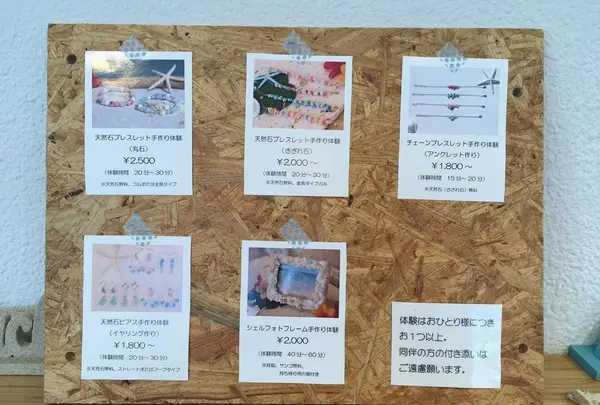 天然石ブレスレット手作り体験
(丸石)
￥2,500
(体験時間 20分～30分)
※天然石無料、ゴムまたは金具タイプ
天然石ブレスレット手作り体験
(さざれ石)
￥2,000～
(体験時間 20分～30分)
※天然石無料、金具タイプのみ
チェーンブレスレット手作り体験
(アンクレット作り)
￥1,800～
(体験時間 15分～20分)
※天然石(さざれ石)無料
天然石ピアス手作り体験
(イヤリング作り)
￥1,800～
(体験時間 20分～30分)
※天然石無料、ストレートまたはフープタイプ
シェルフォトフレーム手作り体験
￥2,000
(体験時間 40分～60分)
※貝殻、サンゴ無料、
持ち帰り用の箱付き
体験はおひとり様につき
お1つ以上。
同伴の方の付き添いは
ご遠慮願います。